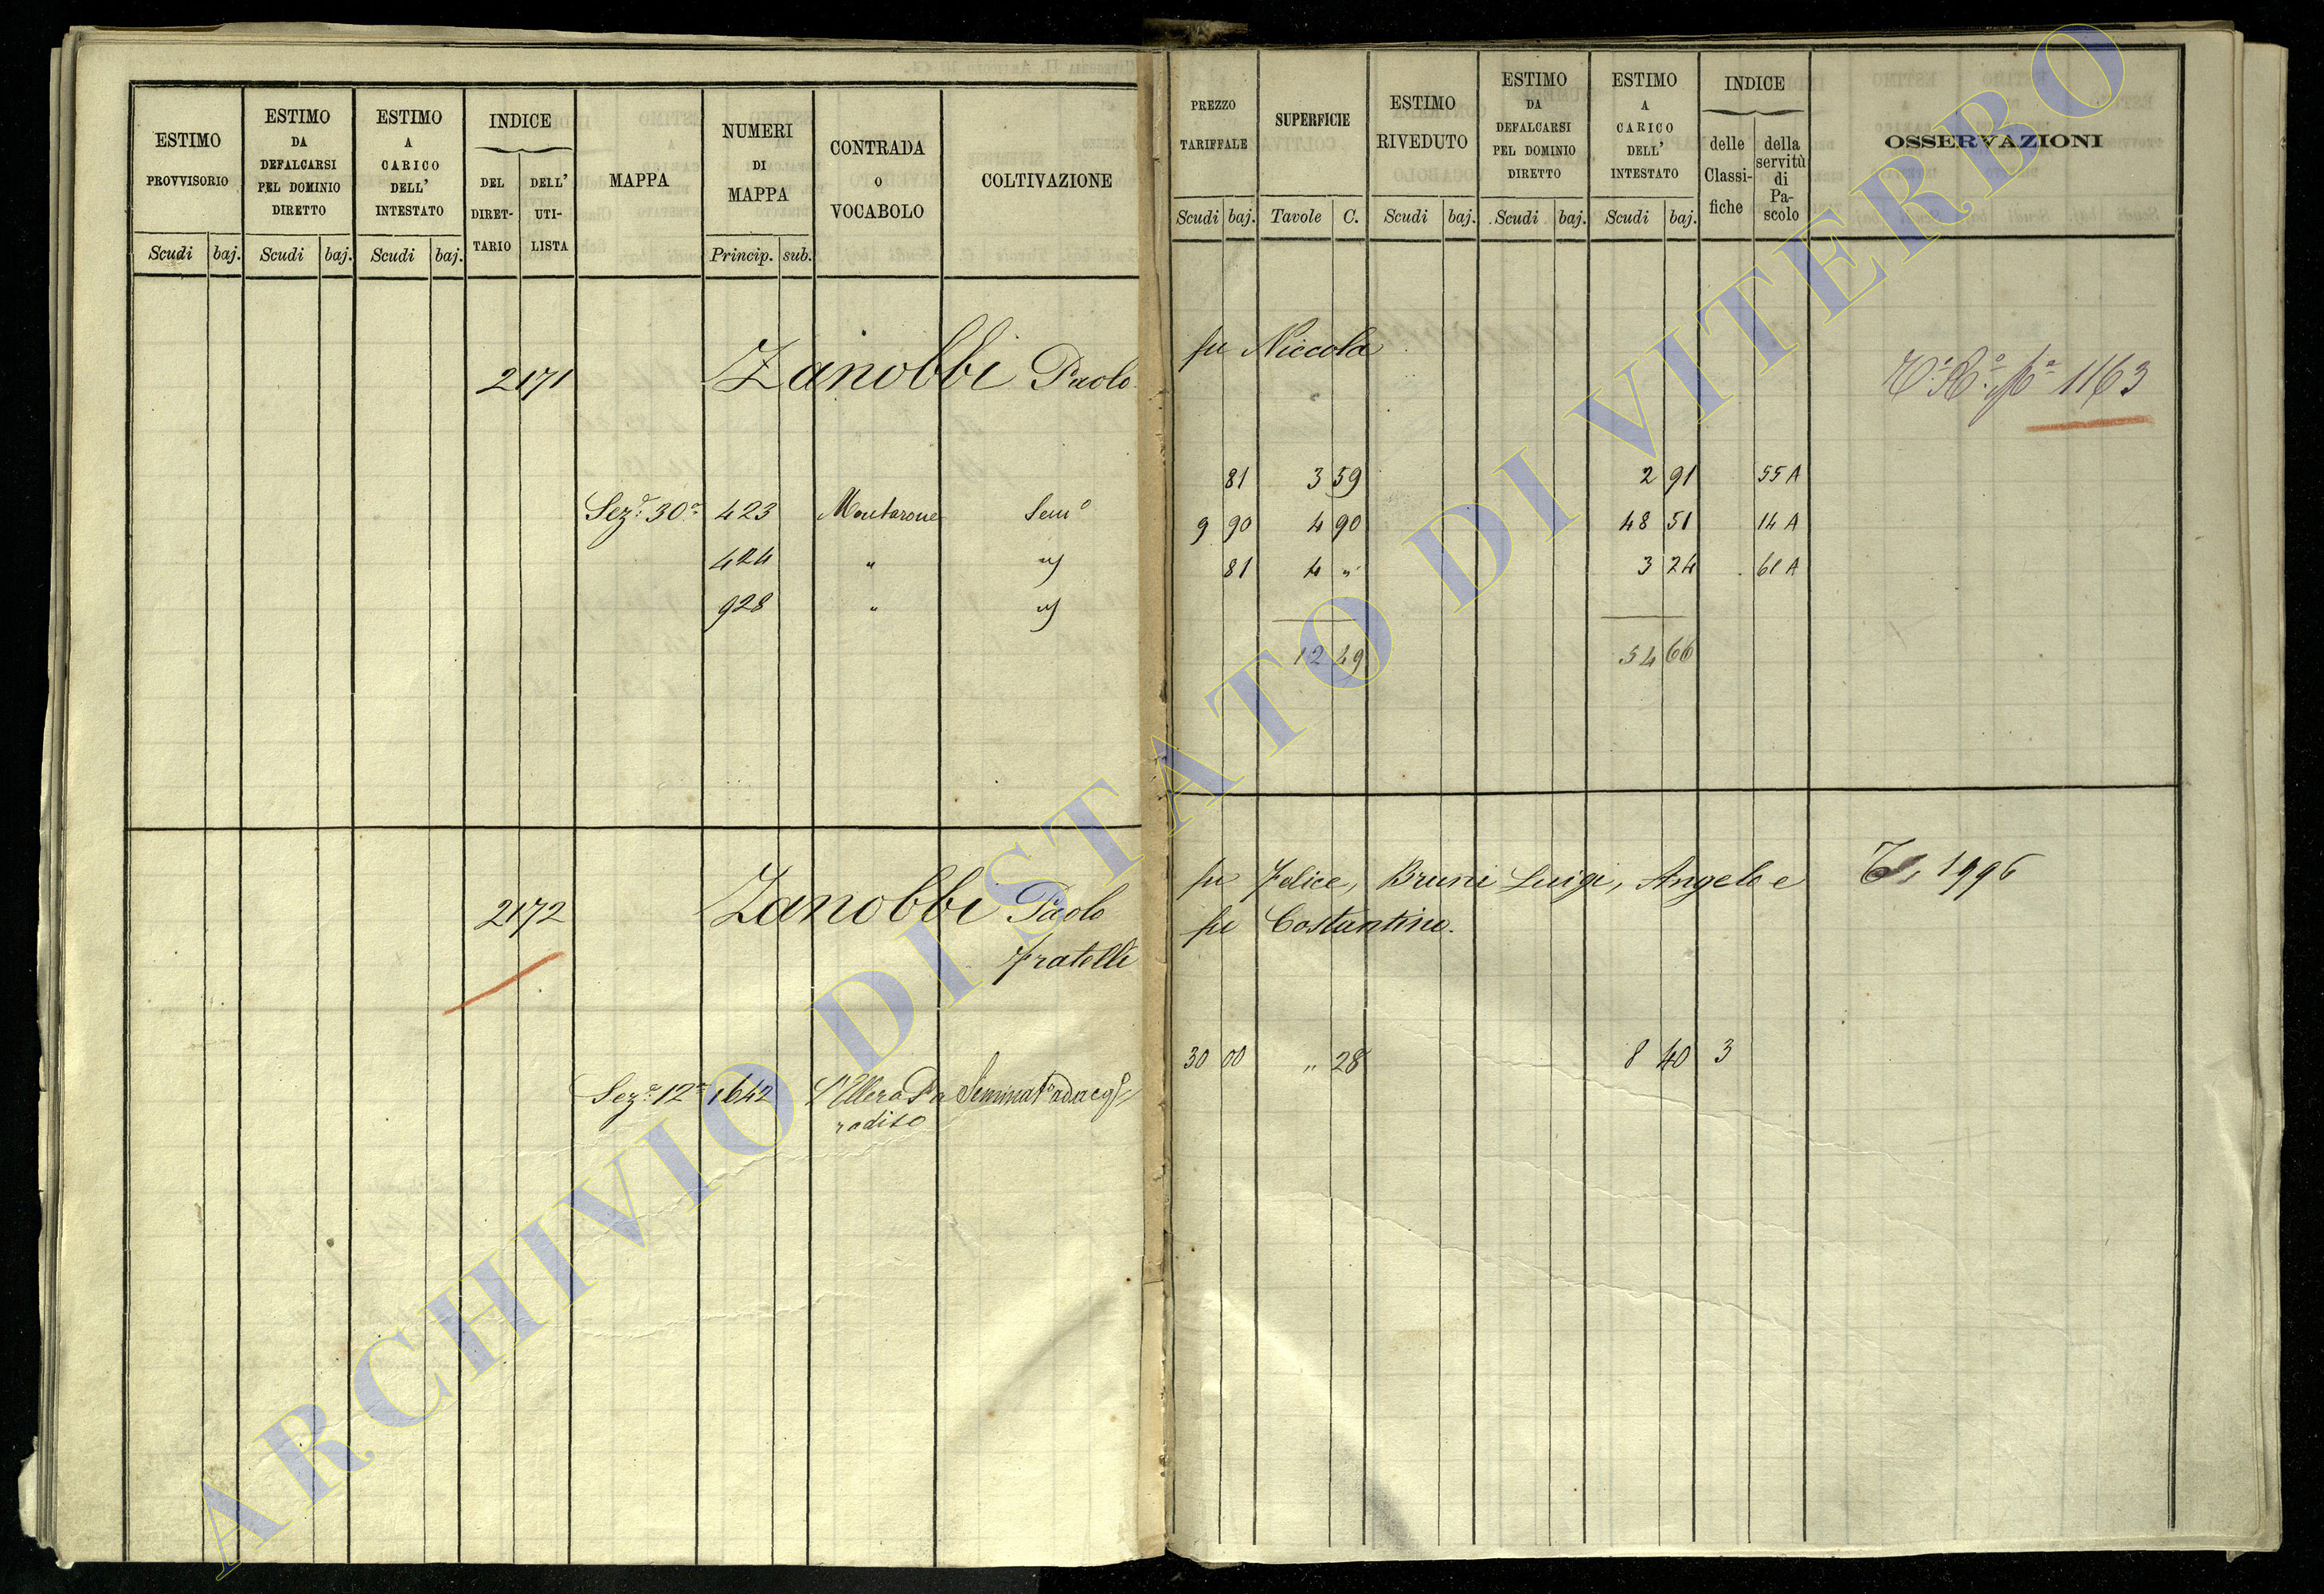 ESTIMO PROVVISORIO
Scudi baj.
ESTIMO DA DEFALCARSI PEL DOMINIO DIRETTO
Scudi baj.
ESTIMO A CARICO DELL' INTESTATO
Scudi baj.
INDICE
DEL DIRET- TARIO
DELL' UTI- LISTA
MAPPA
NUMERI DI MAPPA
Princip. sub.
CONTRADA O VOCABOLO
COLTIVAZIONE
PREZZO TARIFFALE
Scudi baj.
SUPERFICIE
Tavole C.
ESTIMO RIVEDUTO
Scudi baj.
ESTIMO DA DEFALCARSI PEL DOMINIO DIRETTO
Scudi baj.
ESTIMO A CARICO DELL' INTESTATO
Scudi baj.
INDICE
delle Classi- fiche
della servitù di Pa- scolo
OSSERVAZIONI
2171 Zanobbi Paolo fu Niccola 1163
Sez.e 30a 423 Montarone Sem.o 81 3 59 2 91 55 A
424 " 9 90 4 90 48 51 14 A
928 " 81 4 " 3 24 61 A
12 49 54 66
2172 Zanobbi Paolo fu Felice, Bruni Luigi, Angelo e 1996
fratelli fu Costantino.
Sez.e 12a 1642 30 00 " 28 8 40 3
radiso
ARCHIVIO DI STATO DI VITERBO